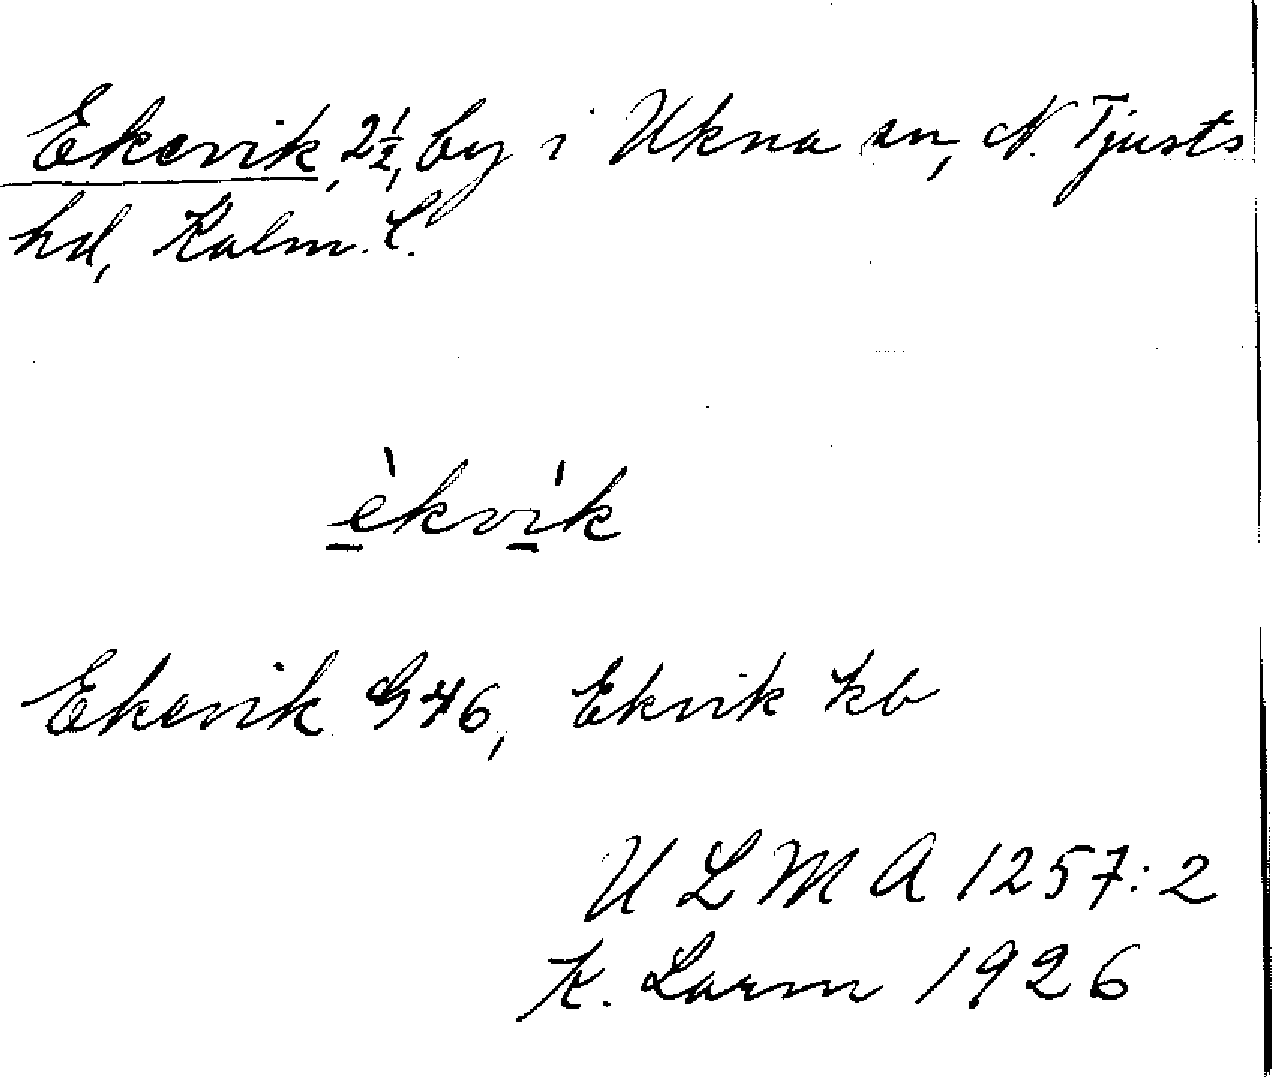 Ekevik, 2½, by i Ukna sn, N. Tjusts
hd, Kalm. l.
èkvík
Ekevik G 46, Ekvik kb
ULMA 1257:2
K. Larm 1926